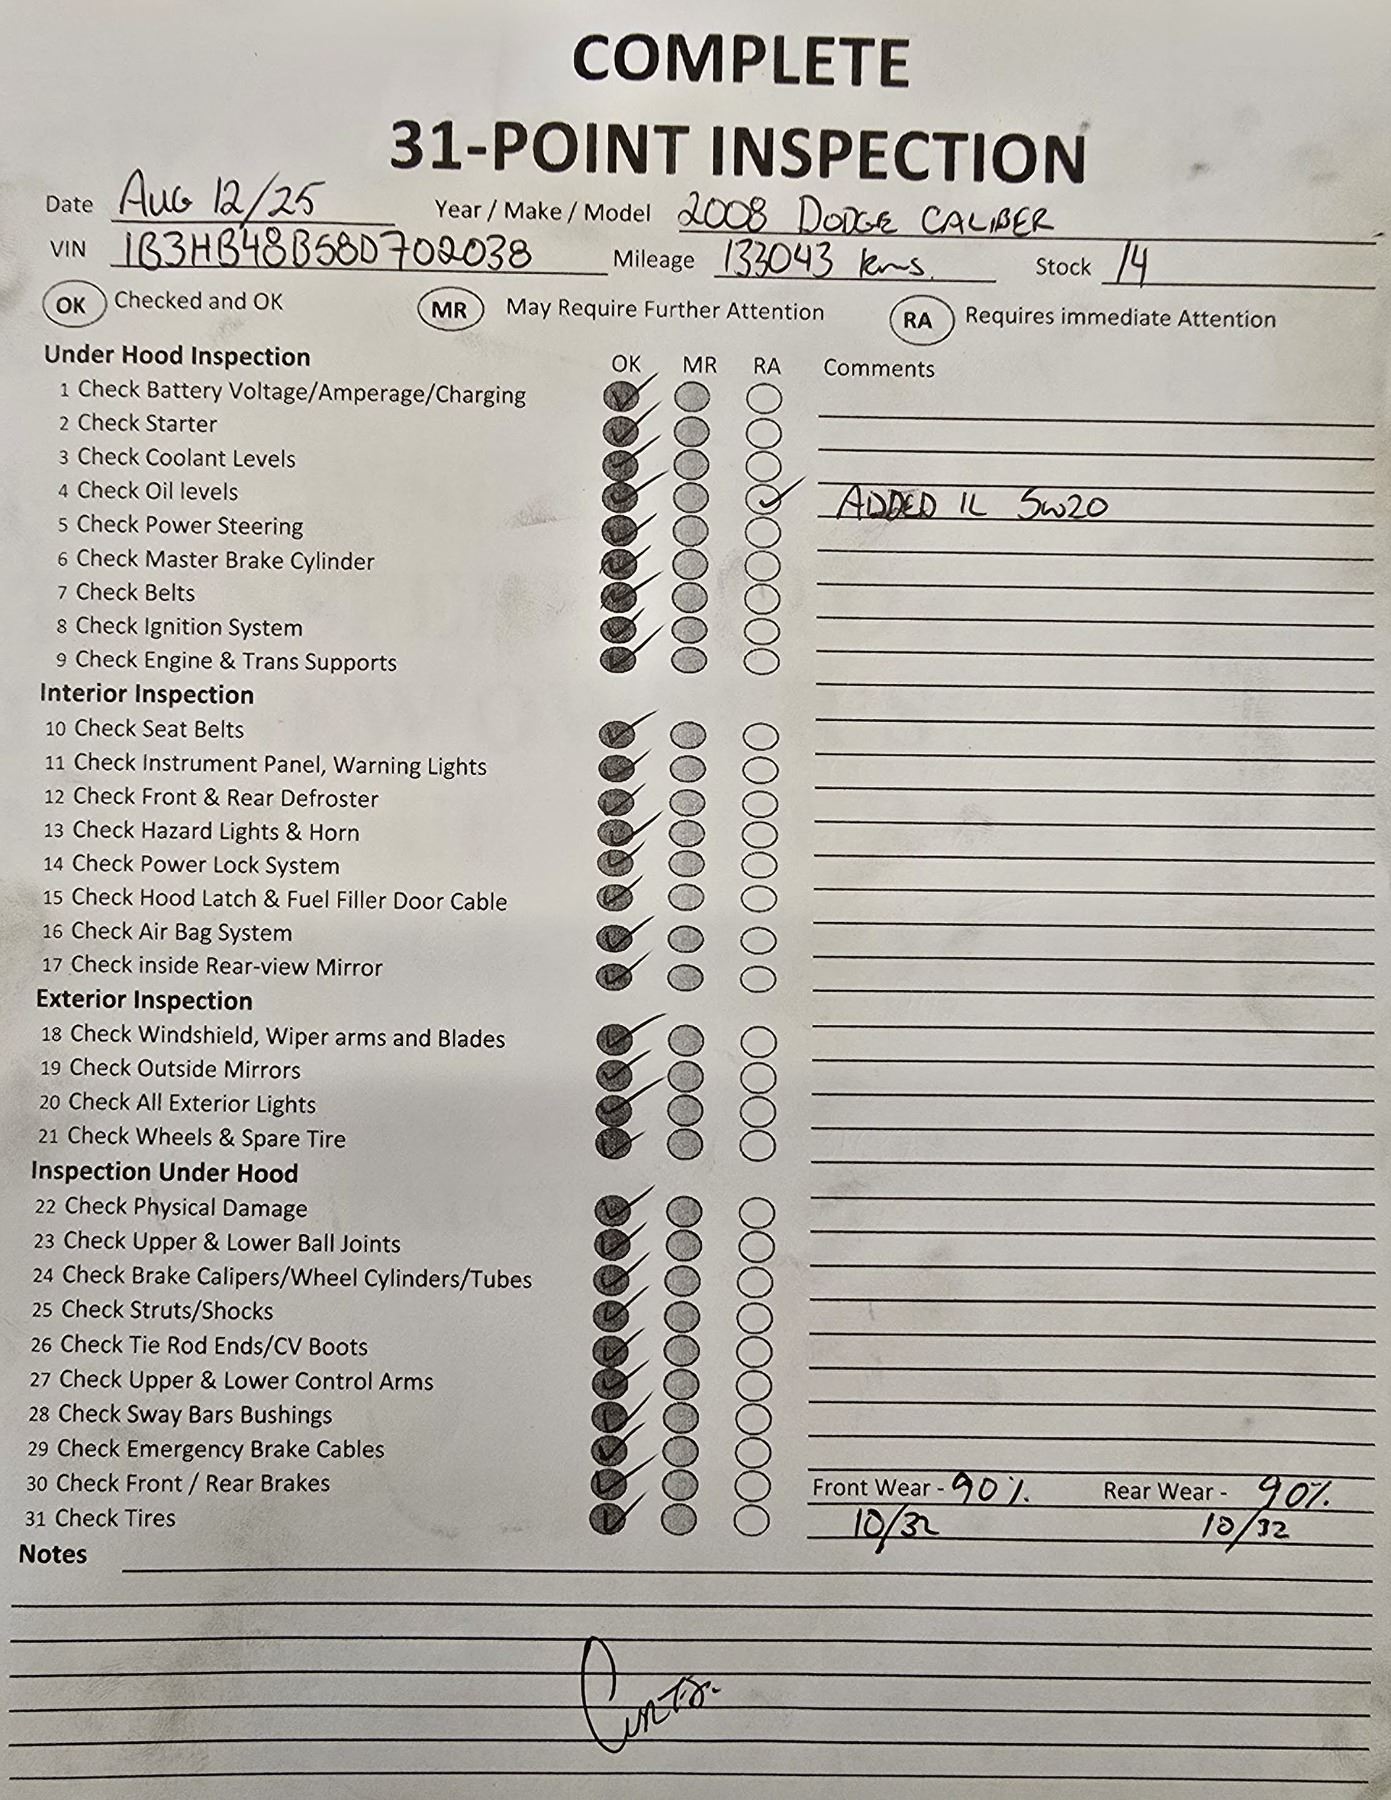 COMPLETE
31-POINT INSPECTION
Date AUG 12/25 Year / Make / Model 2008 DODGE CALIBER
VIN 1B3HB48B58D702038 Mileage 133043 kms. Stock 14
OK Checked and OK MR May Require Further Attention RA Requires immediate Attention
Under Hood Inspection OK MR RA Comments
1 Check Battery Voltage/Amperage/Charging
2 Check Starter
3 Check Coolant Levels
4 Check Oil levels ADDED 1L 5W20
5 Check Power Steering
6 Check Master Brake Cylinder
7 Check Belts
8 Check Ignition System
9 Check Engine & Trans Supports
Interior Inspection
10 Check Seat Belts
11 Check Instrument Panel, Warning Lights
12 Check Front & Rear Defroster
13 Check Hazard Lights & Horn
14 Check Power Lock System
15 Check Hood Latch & Fuel Filler Door Cable
16 Check Air Bag System
17 Check inside Rear-view Mirror
Exterior Inspection
18 Check Windshield, Wiper arms and Blades
19 Check Outside Mirrors
20 Check All Exterior Lights
21 Check Wheels & Spare Tire
Inspection Under Hood
22 Check Physical Damage
23 Check Upper & Lower Ball Joints
24 Check Brake Calipers/Wheel Cylinders/Tubes
25 Check Struts/Shocks
26 Check Tie Rod Ends/CV Boots
27 Check Upper & Lower Control Arms
28 Check Sway Bars Bushings
29 Check Emergency Brake Cables
30 Check Front / Rear Brakes Front Wear - 90% Rear Wear - 90%
31 Check Tires 10/32 10/32
Notes